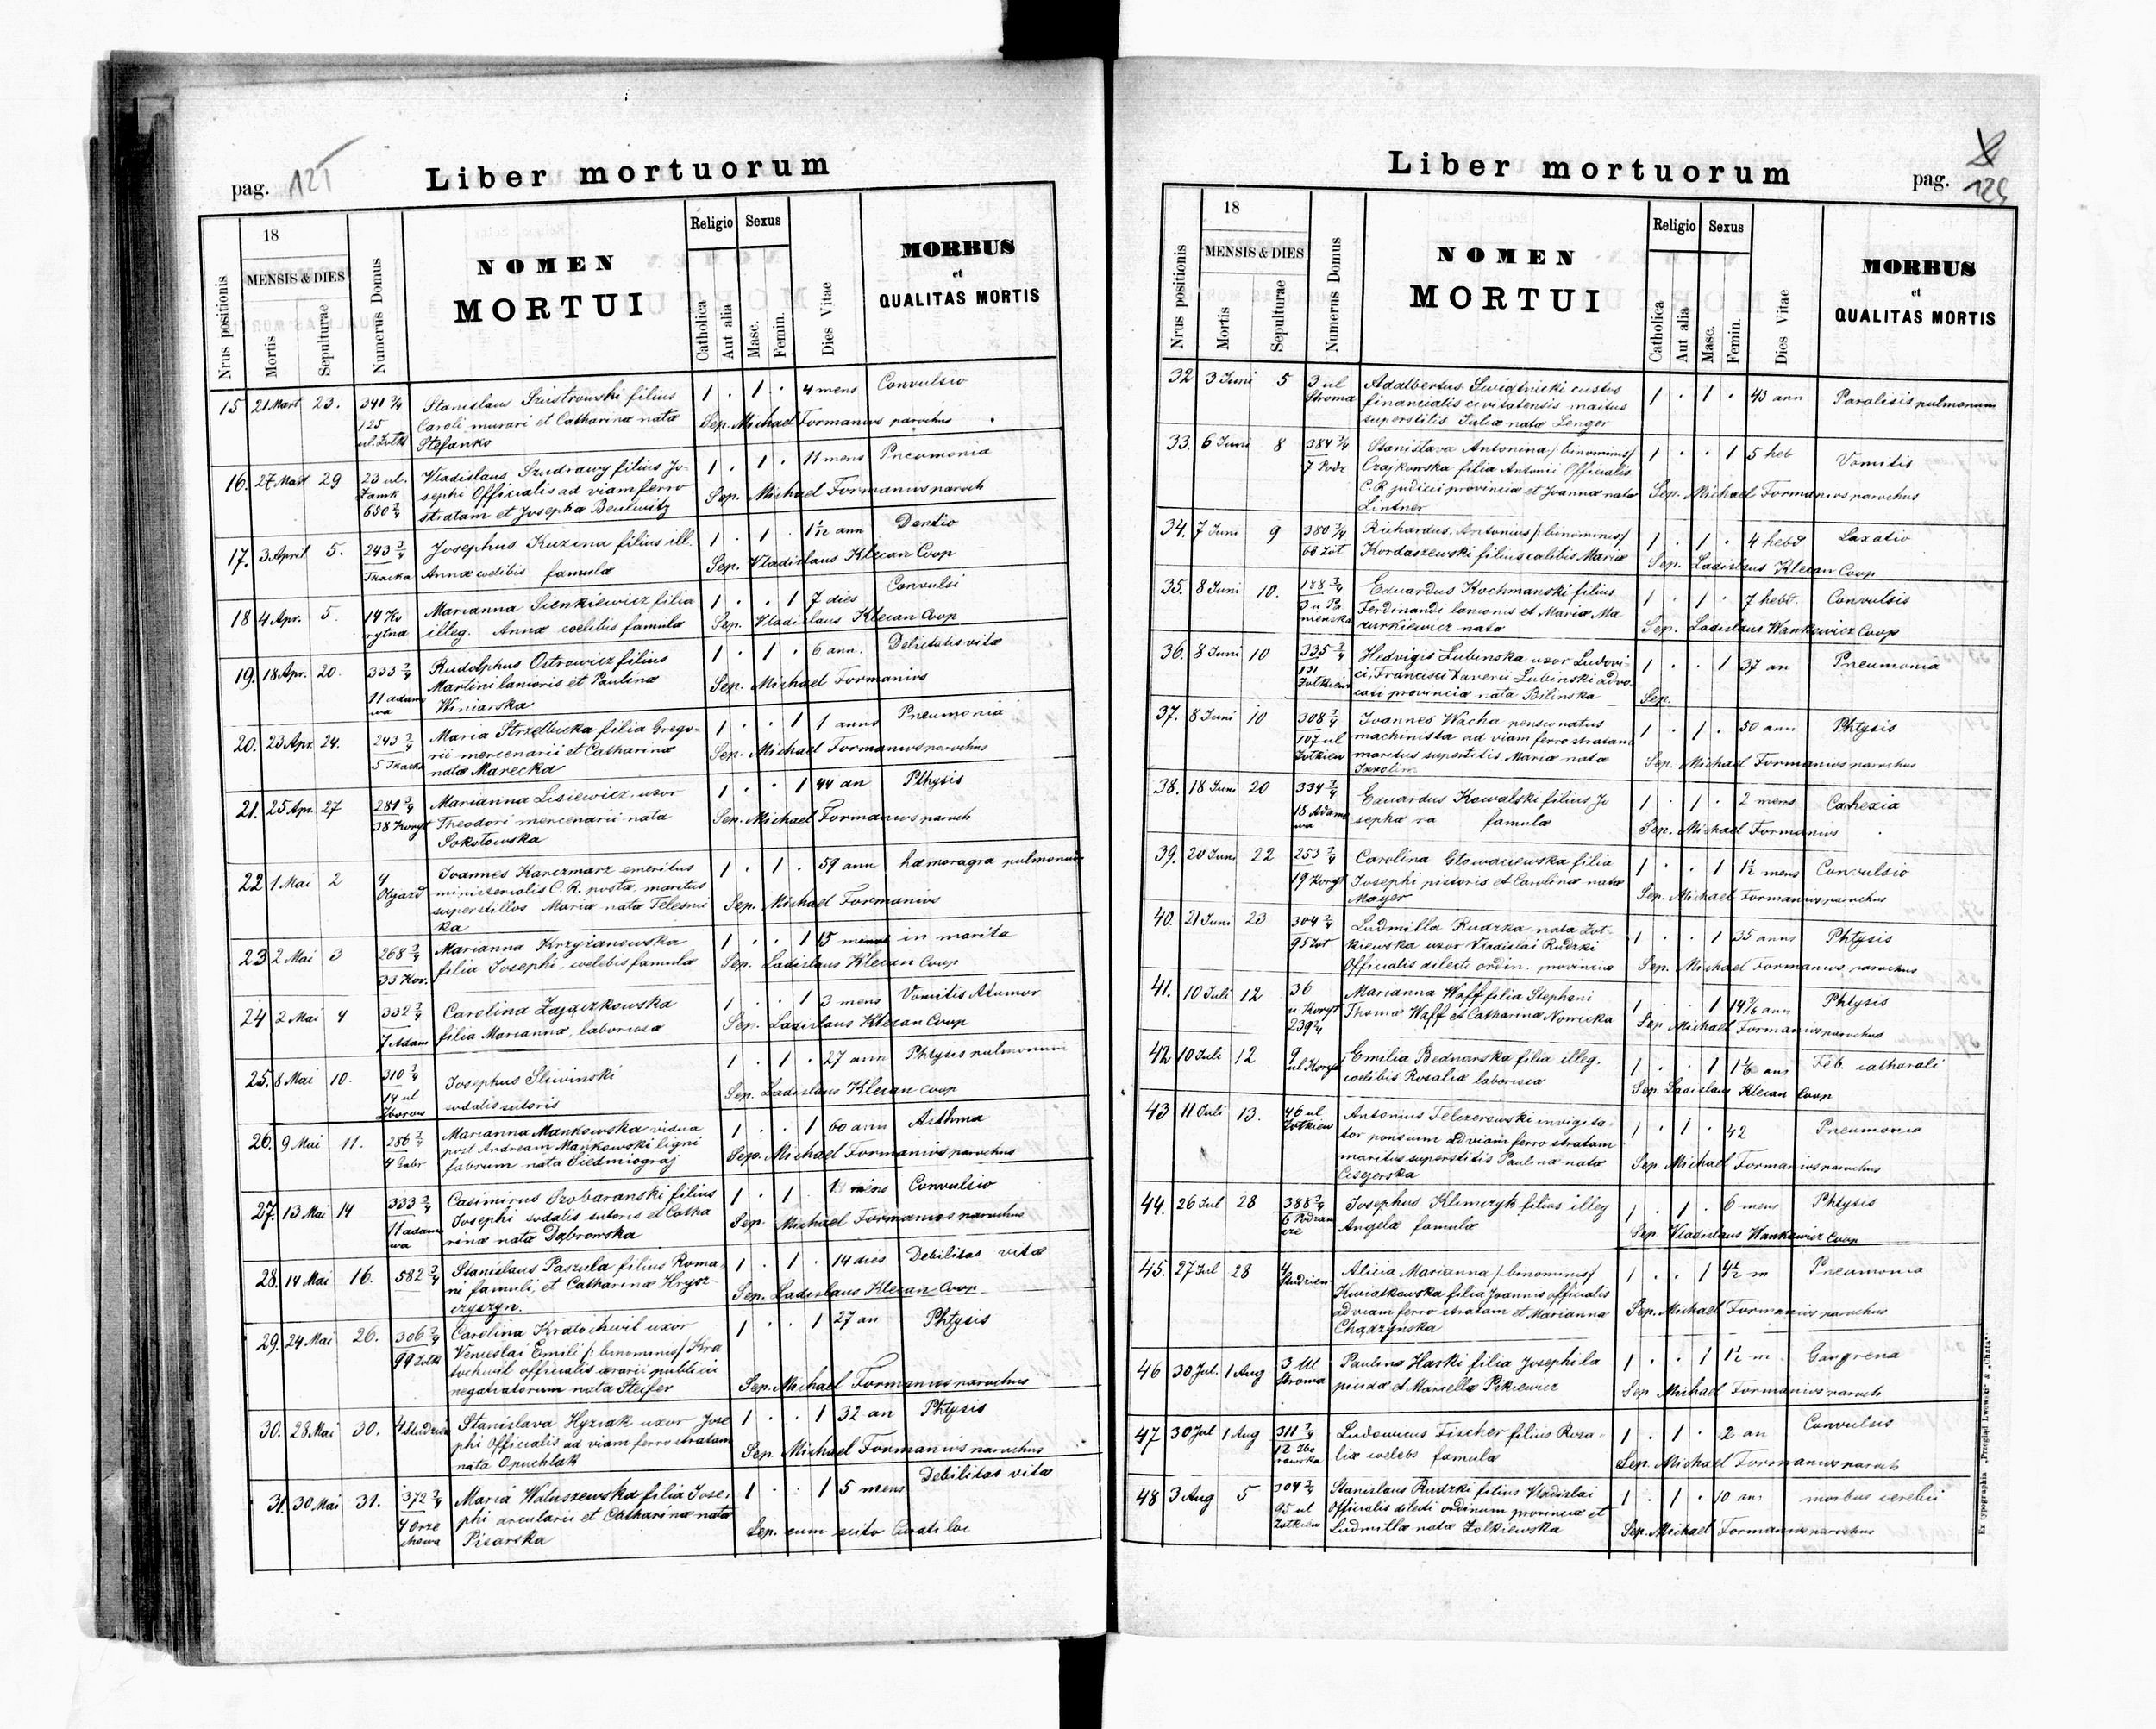 pag. 125
Liber mortuorum
Nrus positionis
18
MENSIS & DIES
Mortis
Sepulturae
Numerus Domus
NOMEN
MORTUI
Religio
Catholica
Aut alia
Sexus
Masc.
Femin.
Dies Vitae
MORBUS
et
QUALITAS MORTIS
15 21 Mart 23. 341 2/4 Stanislaus Szustrowski filius 1 . 1 . 4 mens Convulsio
125 Caroli murari et Catharinæ nata Sep. Michael Formanios parochus
ul. Zolk Stefanko
16. 27 Mart 29 23 ul. Vladislaus Szudrawy filius Jo- 1 . 1 . 11 mens Pneumonia
Zamk sephi Officialis ad viam ferro Sep. Michael Formanios paroch
650 2/4 stratam et Josepha Beulwitz
17. 3 April. 5. 243 2/4 Josephus Kuzina filius ill. 1 . 1 . ann Dentio
Tkacka Annæ coelibis famulæ Sep. Vladislaus Klecan Coop
18 4 Apr. 5. 14 Ko Marianna Sienkiewicz filia 1 . . 1 7 dies Convulsi
rytna illeg. Annæ coelibis famulæ Sep. Vladislaus Klecan Coop
19. 18 Apr. 20. 333 2/4 Rudolphus Ostrowicz filius 1 . 1 . 6 ann. Debilitatis vitæ
11 adam Martini lanioris et Paulinæ Sep. Michael Formanios
wa Winiarska
20. 23 Apr. 24. 243 2/4 Maria Strzelbicka filia Grego- 1 . . 1 1 anno Pneumonia
5 Tkacka rii mercenarii et Catharinæ Sep. Michael Formanios parochus
nata Marecka
21. 25 Apr. 27 281 2/4 Marianna Lisiewicz uxor 1 . . 1 44 an Pthysis
38 Koryt Theodori mercenarii nata Sep. Michael Formanios paroch
Sokołowska
22 1 Mai 2 4 Joannes Karczmarz emeritus 1 . 1 . 59 ann hæmoragra pulmonum
ministerialis C. R. posta, maritus Sep. Michael Formanios
superstillos Mariæ nata Telesni
ka
23 2 Mai 3 268 2/4 Marianna Krzyżanowska 1 . . 1 15 in marita
33 Kor. filia Josephi, coelebis famulæ Sep. Ladislaus Klecan Coop
24 2 Mai 4 332 2/4 Carolina Zajączkowska 1 . . 1 3 mens Vomitis
7 Adam filia Mariannæ, laboriosæ Sep. Ladislaus Klecan Coop
25. 8 Mai 10. 310 2/4 Josephus Sliwinski 1 . 1 . 27 ann Phtysis pulmonum
14 ul sodalis sutoris Sep. Ladislaus Klecan coop
Zborow
26. 9 Mai 11. 286 2/4 Marianna Mankowska vidua 1 . . 1 60 ann Asthma
4 Gabr post Andream Mankowski ligni Sep. Michael Formanios parochus
fabrum nata Siedmiograj
27. 13 Mai 14 333 2/4 Casimirus Szobaranski filius 1 . 1 . mens Convulsio
11 adam Josephi sodalis sutoris et Catha Sep. Michael Formanios parochus
wa rinæ nata Dąbrowska
28. 14 Mai 16. 582 2/4 Stanislaus Paszula filius Roma- 1 . 1 . 14 dies Debilitas vitæ
ni famuli, et Catharinæ Hrysz- Sep. Ladislaus Klecan Coop
czyszyn.
29. 24 Mai 26. 306 2/4 Carolina Kratochwil uxor 1 . . 1 27 an Phtysis
99 Zolk Venceslai Emili /: binominis/ Kra
tochwil officialis ærarii publicii Sep. Michael Formanios parochus
negotiatorum nata Steifer
30. 28 Mai 30. 4 Studzien Stanislava Hyziak uxor Jose 1 . . 1 32 an Phtysis
phi Officialis ad viam ferro stratam Sep. Michael Formanios parochus
nata Opuchlak
31. 30 Mai 31. 372 2/4 Maria Waluszewska filia Jose- 1 . . 1 5 mens Debilitas vitæ
4 Orze phi arcularii et Catharinæ nata Sep. cum scito Curati loc
chowa Pisarska
Liber mortuorum
pag. 125
Nrus positionis
18
MENSIS & DIES
Mortis
Sepulturae
Numerus Domus
NOMEN
MORTUI
Religio
Catholica
Aut alia
Sexus
Masc.
Femin.
Dies Vitae
MORBUS
et
QUALITAS MORTIS
32 3 Juni 5 3 ul Adalbertus Swiątnicki custos 1 . 1 . 43 ann Paralisis pulmonum
Stroma financialis civitatensis maritus
superstitis Juliæ nata Lenger
33. 6 Juni 8 384 2/4 Stanislava Antonina /: binominis/ 1 . . 1 5 heb Vomitis
7 Podz Czajkowska filia Antonii Officialis Sep. Michael Formanios parochus
C. R. judicii provinciæ et Joannæ nata
Lintner
34. 7 Juni 9 380 2/4 Richardus Antonius /: binominis/ 1 . 1 . 4 hebd Laxatio
68 Zol Kordaszewski filius coelibis Mariæ Sep. Ladislaus Klecan Coop
35. 8 Juni 10. 188 2/4 Eduardus Kochmanski filius 1 . 1 . 7 hebd. Convulsis
3 u Pa Ferdinandi lanionis et Mariæ Ma Sep. Ladislaus Wankiewicz Coop
mienska zurkiewicz nata
36. 8 Juni 10 335 2/4 Hedvigis Lubinska uxor Ludovi- 1 . . 1 37 an Pneumonia
131 ci, Francisci Xaverii Lubinski advo-
Zolkiew cati provinciæ nata Bilinska Sep.
37. 8 Juni 10 308 2/4 Joannes Wacha pensionatus 1 . 1 . 50 ann Phtysis
107 ul machinista ad viam ferro stratam
Zolkiew maritus superstitis Mariæ nata Sep. Michael Formanios parochus
38. 18 Juni 20 334 2/4 Eduardus Kowalski filius Jo 1 . 1 . 2 mens Cachexia
18 Adamo sephæ ra famulæ Sep. Michael Formanios
wa
39. 20 Juni 22 253 2/4 Carolina Głowaciewska filia 1 . . 1 1½ mens Convulsio
19 Koryt Josephi pistoris et Carolinæ nata Sep. Michael Formanios parochus
Mayer
40. 21 Juni 23 304 2/4 Ludmilla Rudzka nata Zoł- 1 . . 1 35 anns Phtysis
95 Zol kiewska uxor Vladislai Rudzki
Officialis dilecti ordin. provinciæ Sep. Michael Formanios parochus
41. 10 Juli 12 36 Marianna Waff filia Stephani 1 . . 1 ann Phtysis
u Koryt Thomæ Waff et Catharinæ Nowicka Sep. Michael Formanios parochus
239 2/4
42 10 Juli 12 9 Emilia Bednarska filia illeg. 1 . . 1 ann Feb. catharali
ul Koryt coelibis Rosaliæ laboriosæ Sep. Ladislaus Klecan Coop
43 11 Juli 13. 46 ul Antonius Telezerowski invigita- 1 . 1 . 42 Pneumonia
Zolkiew tor ponsium ad viam ferro stratam
maritus superstitis Paulinæ nata Sep. Michael Formanios parochus
44. 26 Jul 28 388 2/4 Josephus Klimczyk filius illeg 1 . 1 . 6 mens Phtysis
6 Podzam Angelæ famulæ Sep. Vladislaus Wankiewicz Coop
cze
45. 27 Jul 28 4 Alicia Marianna /: binominis/ 1 . . 1 4½ m Pneumonia
Studzien Kwiatkowska filia Joannis officialis
ad viam ferro stratam et Marianna Sep. Michael Formanios parochus
Chądzyńska
46 30 Jul. 1 Aug 3 Ul Paulina Harki filia Josephi la 1 . . 1 1½ m. Gangrena
Stroma picidæ et Mariellæ Pikiewicz Sep Michael Formanios paroch
47 30 Jul 1 Aug 311 2/4 Ludovicus Fischer filius Rosa- 1 . 1 . 2 an Convulsis
12 Zbo liæ coelebs famulæ Sep. Michael Formanios paroch
rowska
48 3 Aug 5 304 2/4 Stanislaus Rudzki filius Vladislai 1 . 1 . 10 ann morbus cerebii
95 ul Officialis dilecti ordinum provinciæ et
Zolkiew Ludmillæ nata Zolkiewska Sep. Michael Formanios parochus
Ex typographia „Przegląd Lwowski" & „Chata".